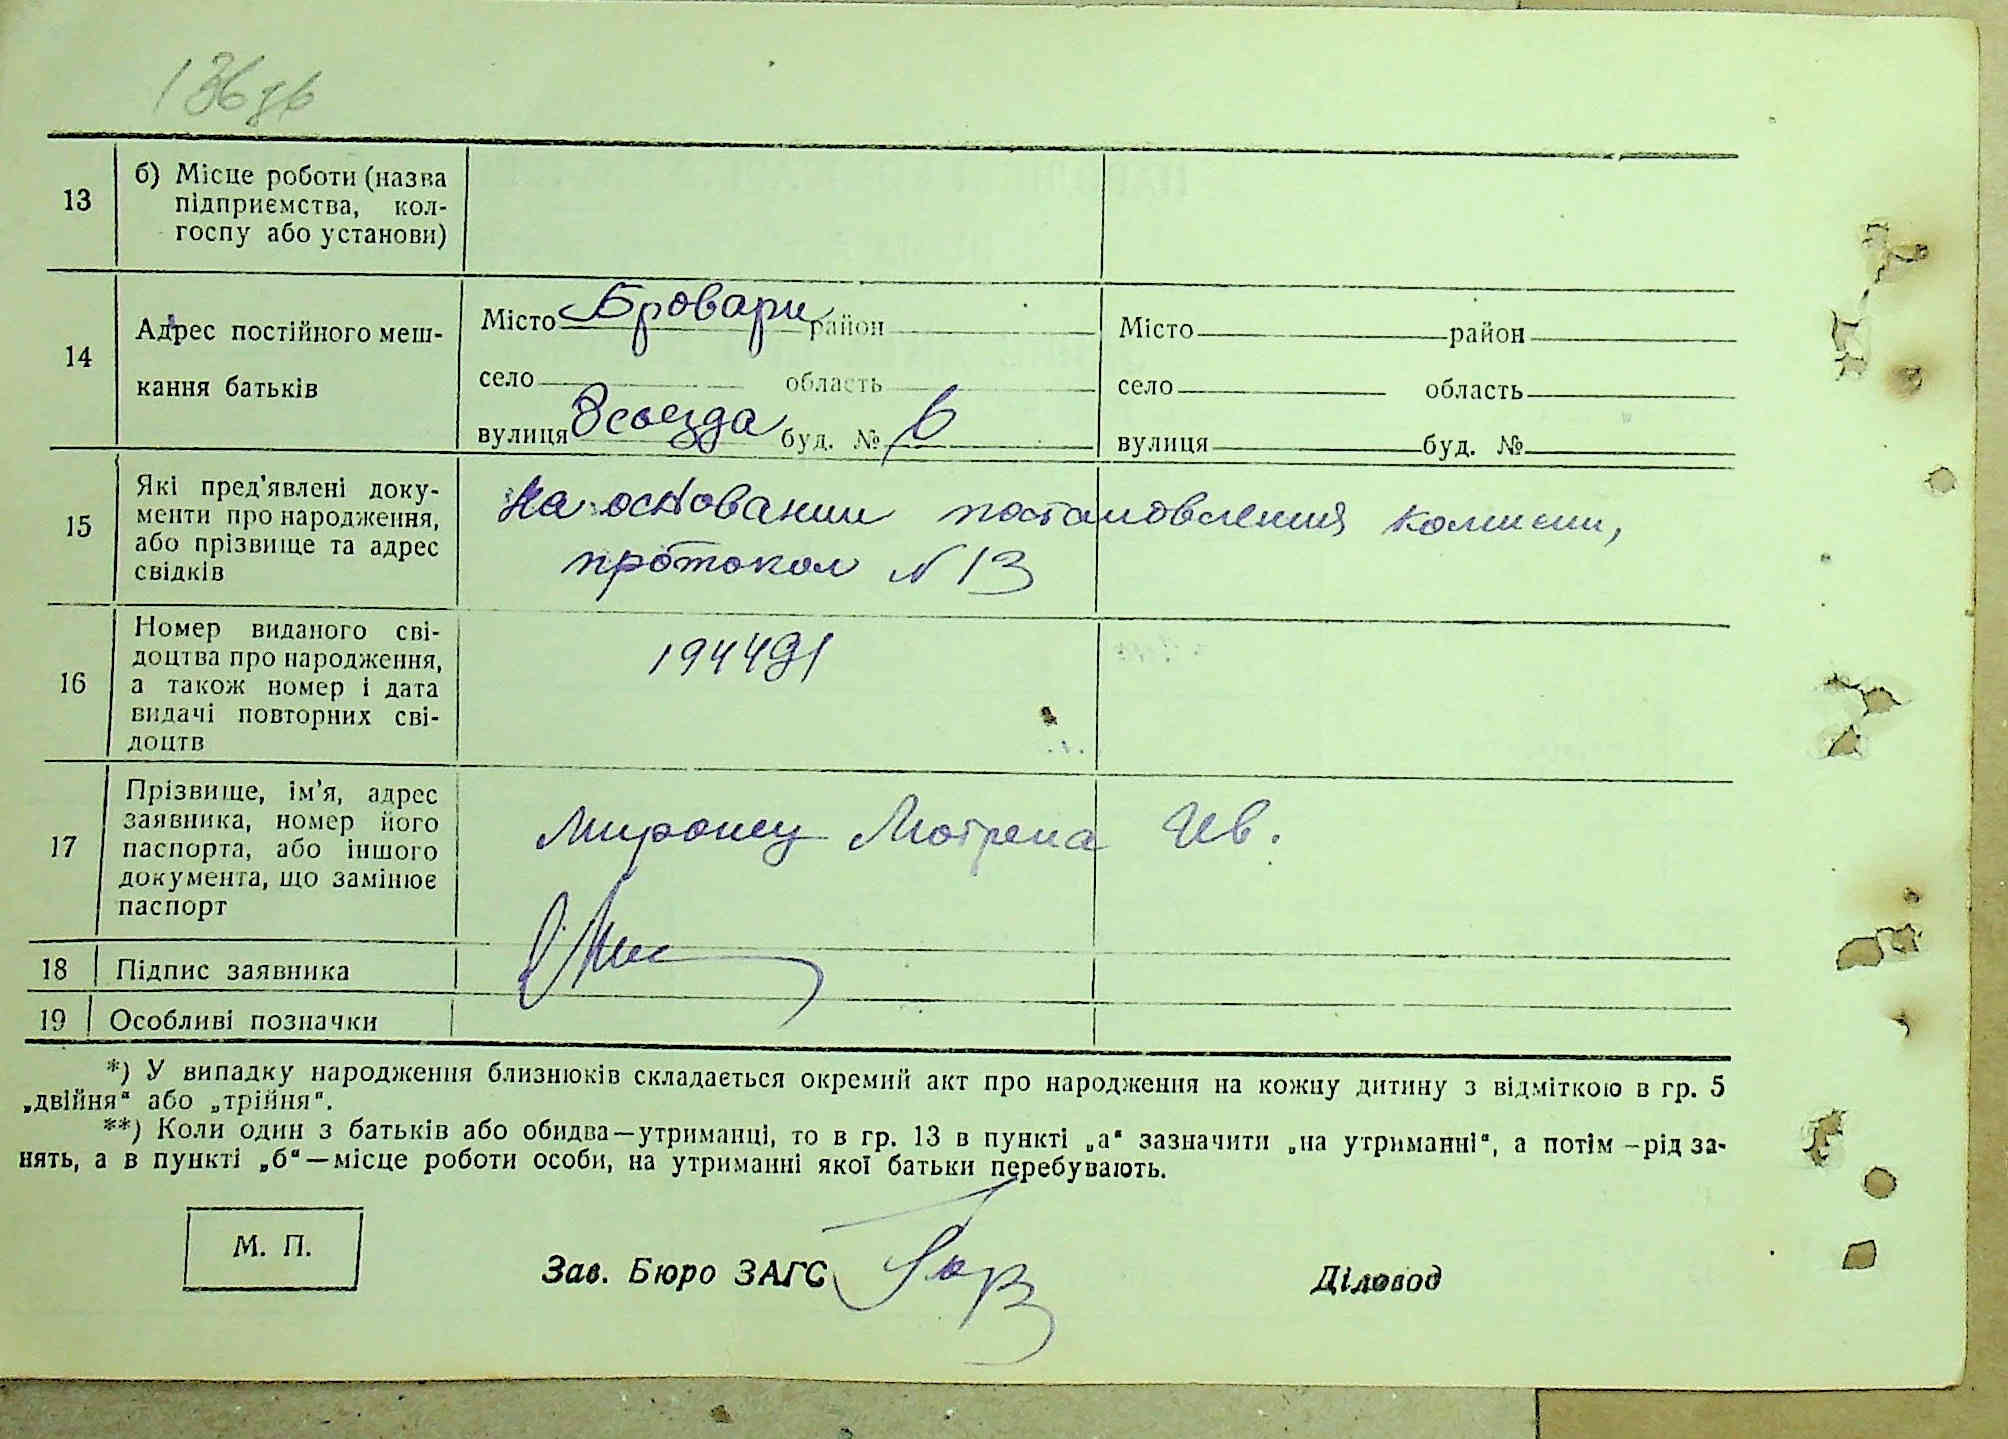 136зв
13
б) Місце роботи (назва
підприємства, кол-
госпу або установи)
14
Адрес постійного меш-
кання батьків
Місто Бровари район
село область
вулиця 8 сьезда буд. № 6
Місто район
село область
вулиця буд. №
15
Які пред'явлені доку-
менти про народження,
або прізвище та адрес
свідків
На основании постановления комисии,
протокол N 13
16
Номер виданого сві-
доцтва про народження,
а також номер і дата
видачі повторних сві-
доцтв
194491
17
Прізвище, ім'я, адрес
заявника, номер його
паспорта, або іншого
документа, що замінює
паспорт
Миронец Мотрена Ив.
18
Підпис заявника
19
Особливі позначки
*) У випадку народження близнюків складається окремий акт про народження на кожну дитину з відміткою в гр. 5
„двійня" або „трійня".
**) Коли один з батьків або обидва—утриманці, то в гр. 13 в пункті „а" зазначити „на утриманні", а потім—рід за-
нять, а в пункті „б"—місце роботи особи, на утриманні якої батьки перебувають.
М. П.
Зав. Бюро ЗАГС
Діловод